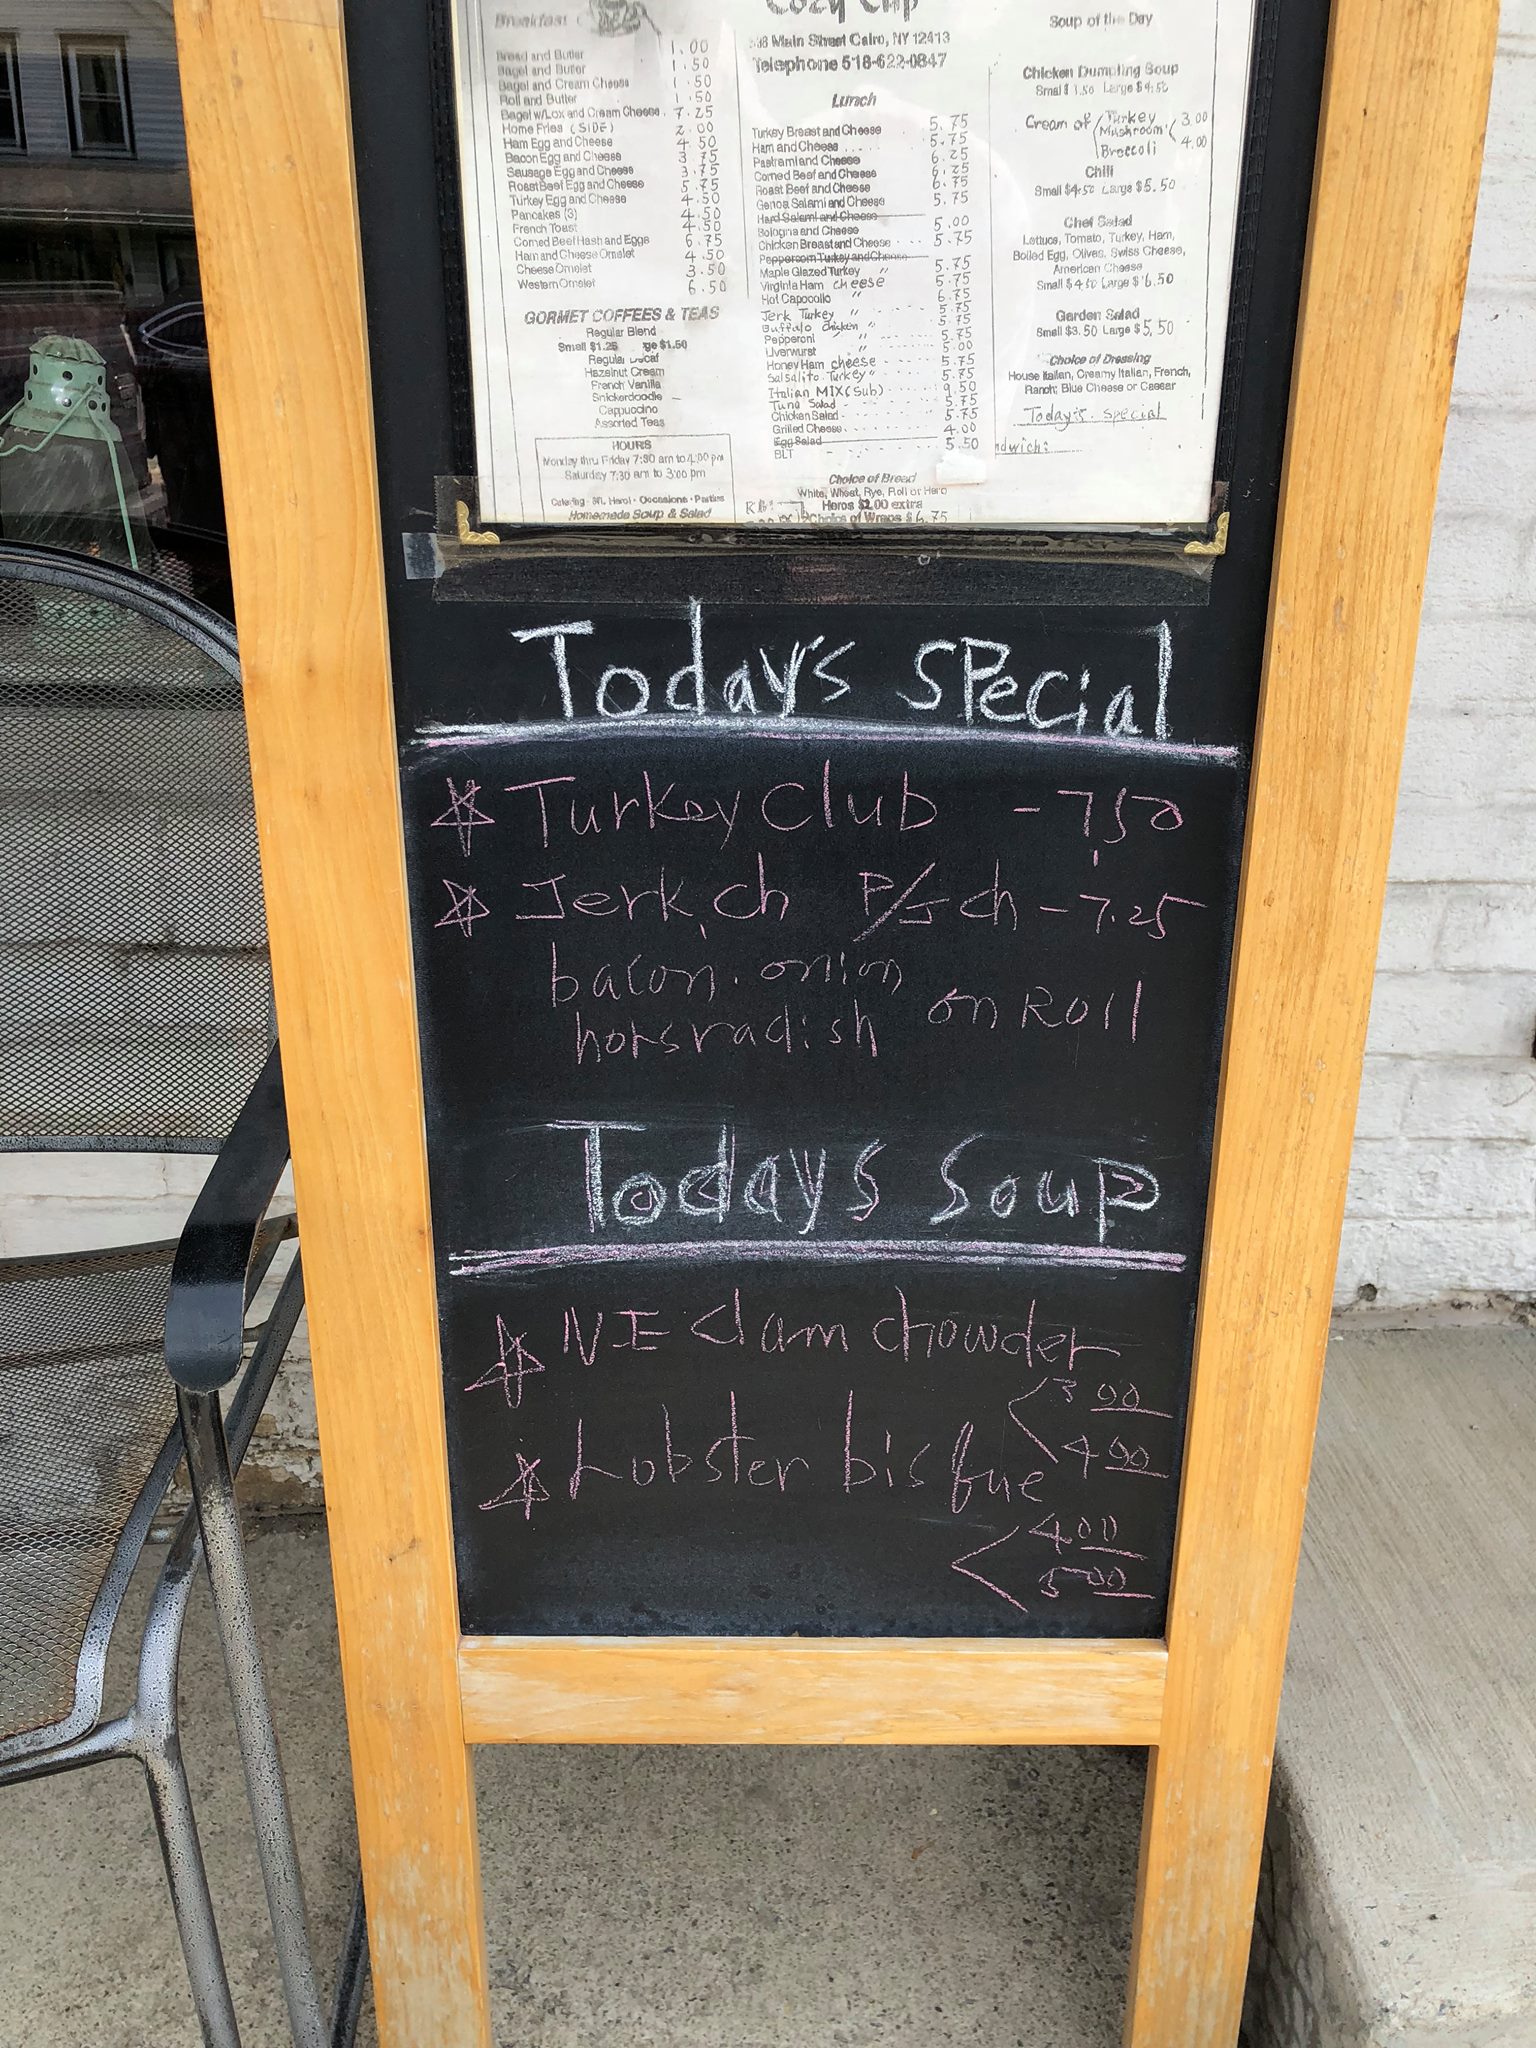 Breakfast
Bread and Butter 1.00
Bagel and Butter 1.50
Bagel and Cream Cheese 1.50
Roll and Butter 1.50
Bagel w/Lox and Cream Cheese. 7.25
Home Fries (SIDE) 2.00
Ham Egg and Cheese 4.50
Bacon Egg and Cheese 3.75
Sausage Egg and Cheese 3.75
Roast Beef Egg and Cheese 5.75
Turkey Egg and Cheese 4.50
Pancakes (3) 4.50
French Toast 4.50
Corned Beef Hash and Eggs 6.75
Ham and Cheese Omelet 4.50
Cheese Omelet 3.50
Western Omelet 6.50
GORMET COFFEES & TEAS
Regular Blend
Small $1.25 ge $1.50
Regular Decaf
Hazelnut Cream
French Vanilla
Snickerdoodle
Cappuccino
Assorted Teas
HOURS
Monday thru Friday 7:30 am to 4:00 pm
Saturday 7:30 am to 3:00 pm
Catering Occasions • Parties
Homemade Soup & Salad
Cozy Cup
Main Street Cairo, NY 12413
Telephone 518-622-0847
Lunch
Turkey Breast and Cheese 5.75
Ham and Cheese 5.75
Pastrami and Cheese 6.25
Corned Beef and Cheese 6.25
Roast Beef and Cheese 6.75
Genoa Salami and Cheese 5.75
Hard Salami and Cheese
Bologna and Cheese 5.00
Chicken Breast and Cheese 5.75
Peppercorn Turkey and Cheese
Maple Glazed Turkey " 5.75
Virginia Ham cheese 5.75
Hot Capocollo " 6.75
Jerk Turkey " 5.75
Buffalo chicken " 5.75
Pepperoni " 5.75
Liverwurst " 5.00
Honey Ham cheese 5.75
Salsalito Turkey " 5.75
Italian MIX (Sub) 9.50
Tuna Salad 5.75
Chicken Salad 5.75
Grilled Cheese 4.00
Egg Salad
BLT 5.50
Choice of Bread
White, Wheat, Rye, Roll or Hero
Heros $2.00 extra
Choice of Wraps $6.75
Soup of the Day
Chicken Dumpling Soup
Small $3.50 Large $4.50
Cream of Turkey 3.00
Mushroom
Broccoli 4.00
Chili
Small $4.50 Large $5.50
Chef Salad
Lettuce, Tomato, Turkey, Ham,
Boiled Egg, Olives, Swiss Cheese,
American Cheese
Small $4.50 Large $6.50
Garden Salad
Small $3.50 Large $5.50
Choice of Dressing
House Italian, Creamy Italian, French,
Ranch, Blue Cheese or Caesar
Today's special
dwich:
Today's special
Turkey club - 7.50
Jerk, ch P/J ch - 7.25
bacon. onion
horsradish on Roll
Today's soup
NE clam chowder
3 00
4 00
Lobster bisque
4 00
5 00